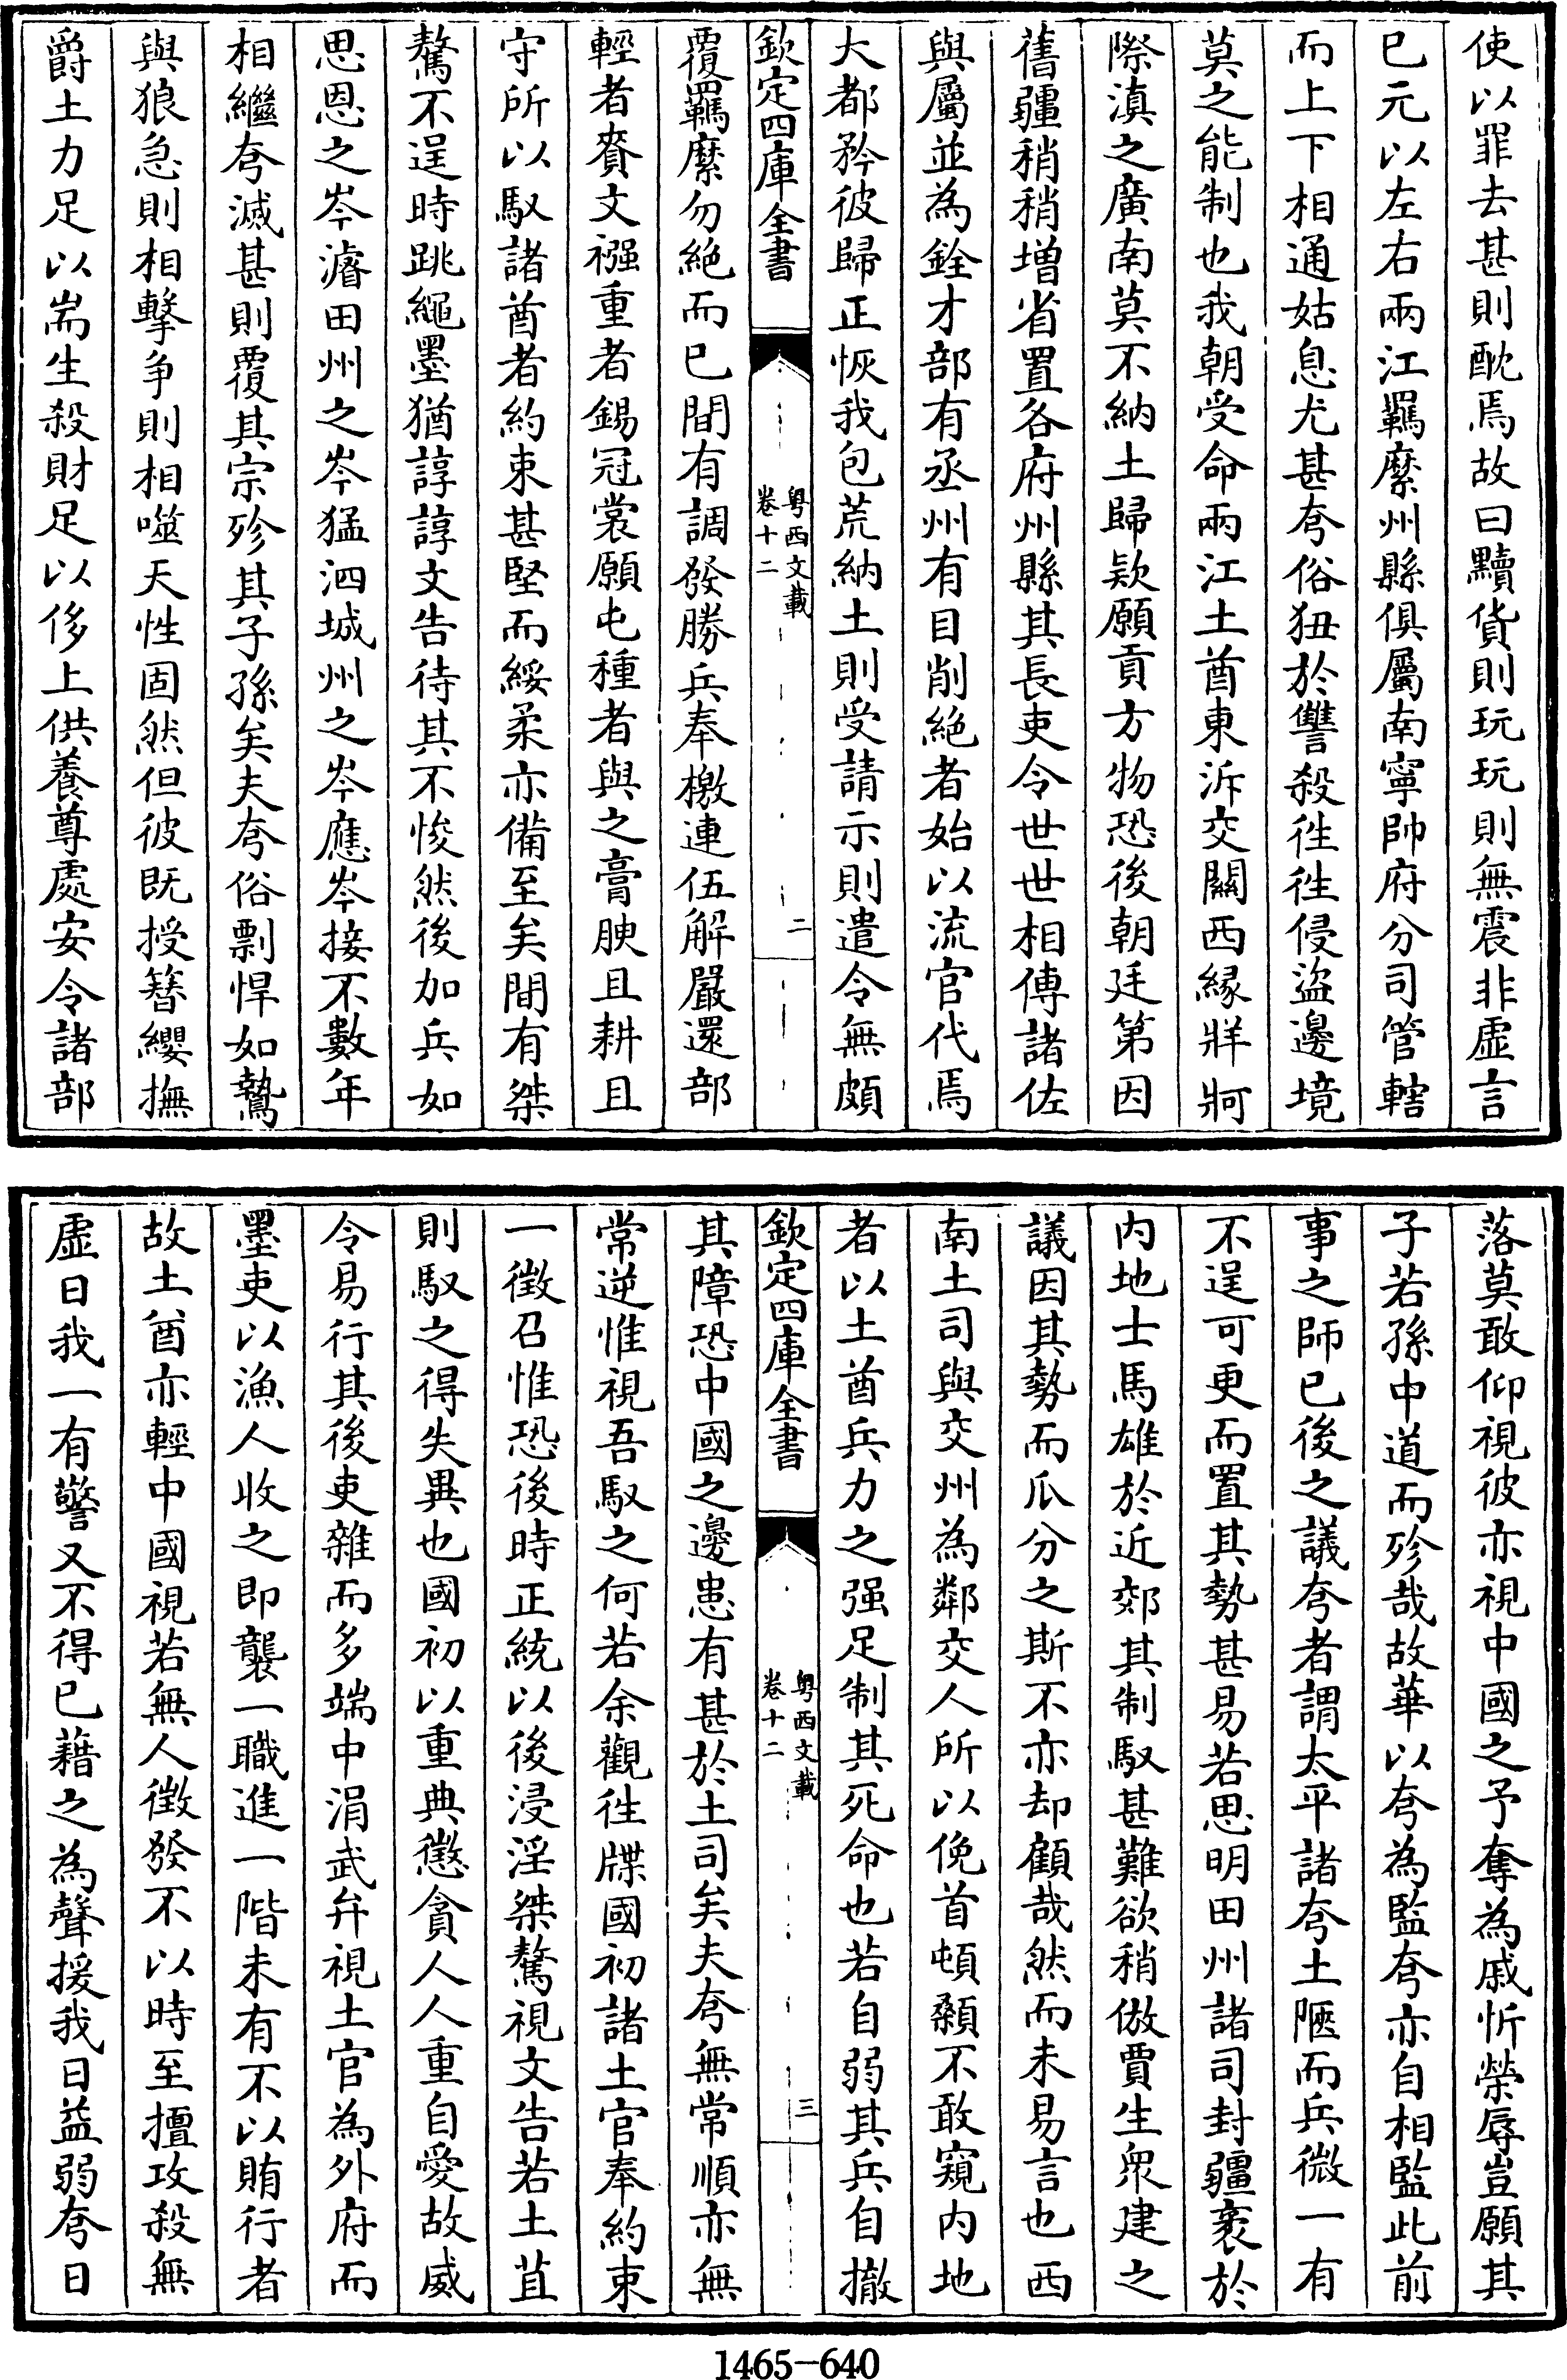 使以罪去甚則酖焉故曰黷貨則玩玩則無震非虚言
已元以左右兩江羈縻州縣俱屬南寧帥府分司管轄
而上下相通姑息尤甚夸俗狃於讐殺徃徃侵盜邊境
莫之能制也我朝受命兩江土酋東泝交關西緣牂牁
際滇之廣南莫不納土歸欵願貢方物恐後朝廷第因
舊疆稍稍增省置各府州縣其長吏令世世相傳諸佐
與屬並為銓才部有丞州有目削絶者始以流官代焉
大都矜彼歸正恢我包荒納土則受請示則遣令無頗
欽定四庫全書
粤西文載
卷十二
二
覆羈縻勿絶而已間有調發勝兵奉檄連伍解嚴還部
輕者賚文襁重者錫冠裳願屯種者與之膏腴且耕且
守所以馭諸酋者約束甚堅而綏柔亦備至矣間有桀
驁不逞時跳繩墨猶諄諄文告待其不悛然後加兵如
思恩之岑濬田州之岑猛泗城州之岑應岑接不數年
相繼夸滅甚則覆其宗殄其子孫矣夫夸俗剽悍如鷙
與狼急則相擊爭則相噬天性固然但彼既授簪纓撫
爵土力足以耑生殺財足以侈上供養尊處安令諸部
落莫敢仰視彼亦視中國之予奪為戚忻榮辱豈願其
子若孫中道而殄哉故華以夸為監夸亦自相監此前
事之師已後之議夸者謂太平諸夸土陿而兵微一有
不逞可更而置其勢甚易若思明田州諸司封疆袤於
内地士馬雄於近郊其制馭甚難欲稍倣賈生衆建之
議因其勢而瓜分之斯不亦却顧哉然而未易言也西
南土司與交州為鄰交人所以俛首頓顙不敢窺内地
者以土酋兵力之强足制其死命也若自弱其兵自撤
欽定四庫全書
粤西文載
卷十二
三
其障恐中國之邊患有甚於土司矣夫夸無常順亦無
常逆惟視吾馭之何若余觀徃牒國初諸土官奉約束
一徵召惟恐後時正統以後浸淫桀驁視文告若土苴
則馭之得失異也國初以重典懲貪人人重自愛故威
令易行其後吏雜而多端中涓武弁視土官為外府而
墨吏以漁人收之即襲一職進一階未有不以賄行者
故土酋亦輕中國視若無人徵發不以時至擅攻殺無
虛日我一有警又不得已藉之為聲援我日益弱夸日
1465-640